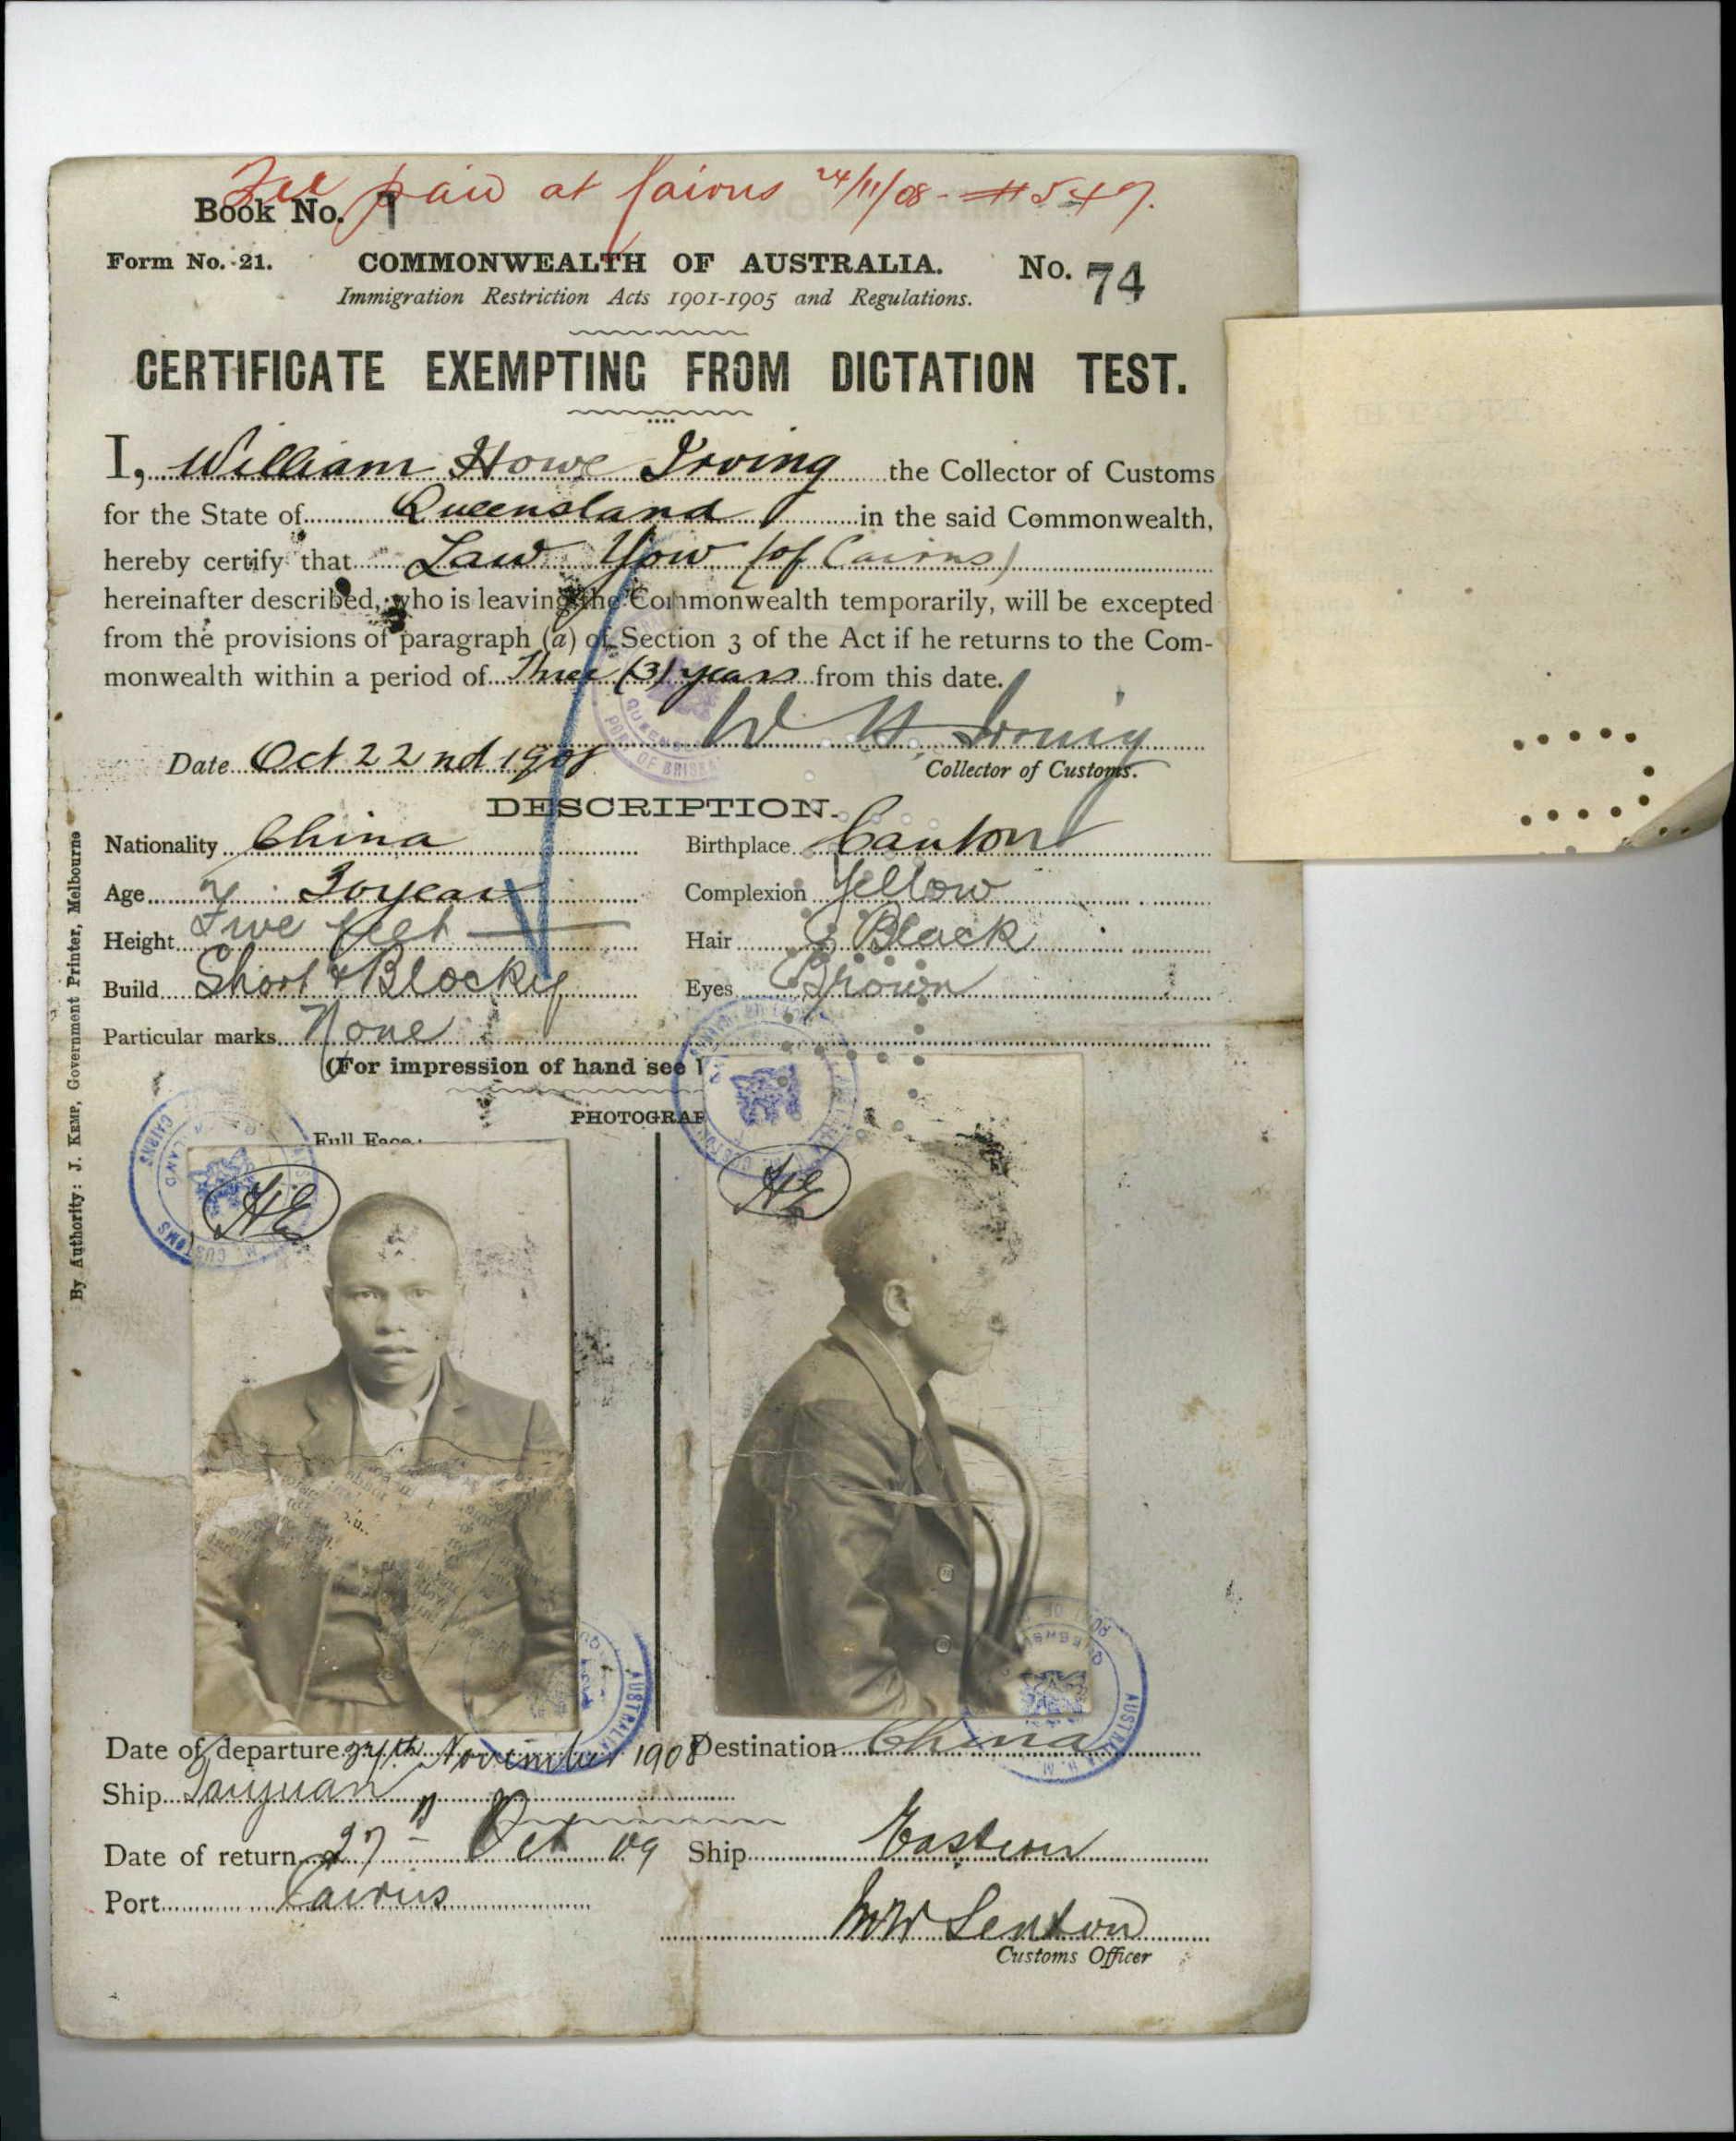 Fee paid at Cairns 24/11/08 - # 547.
Book No. 7
Form No. 21. COMMONWEALTH OF AUSTRALIA. No. 74
Immigration Restriction Acts 1901-1905 and Regulations.
CERTIFICATE EXEMPTING FROM DICTATION TEST.
I, William Howe Irving the Collector of Customs
for the State of Queensland in the said Commonwealth,
hereby certify that Law Yow (of Cairns)
hereinafter described, who is leaving the Commonwealth temporarily, will be excepted
from the provisions of paragraph (a) of Section 3 of the Act if he returns to the Com-
monwealth within a period of Three (3) years from this date.
W H Irving
Date Oct 22nd 1908
Collector of Customs.
DESCRIPTION.
Nationality China Birthplace Canton
Age 30 years Complexion Yellow
Height Five feet Hair Black
Build Short & Blocky Eyes Brown
Particular marks None
(For impression of hand see
PHOTOGRAP
Full Face:
HE
HE
CAIRNS
CUSTOMS
AUSTRALIA
AUSTRALIA H.M.
QUEENSLAND
PORT OF BRISBA
By Authority: J. KEMP, Government Printer, Melbourne
Date of departure 24th November 1908 Destination China
Ship Taiyuan
Date of return 27 - Oct 09 Ship Eastern
Port Cairns
Customs Officer